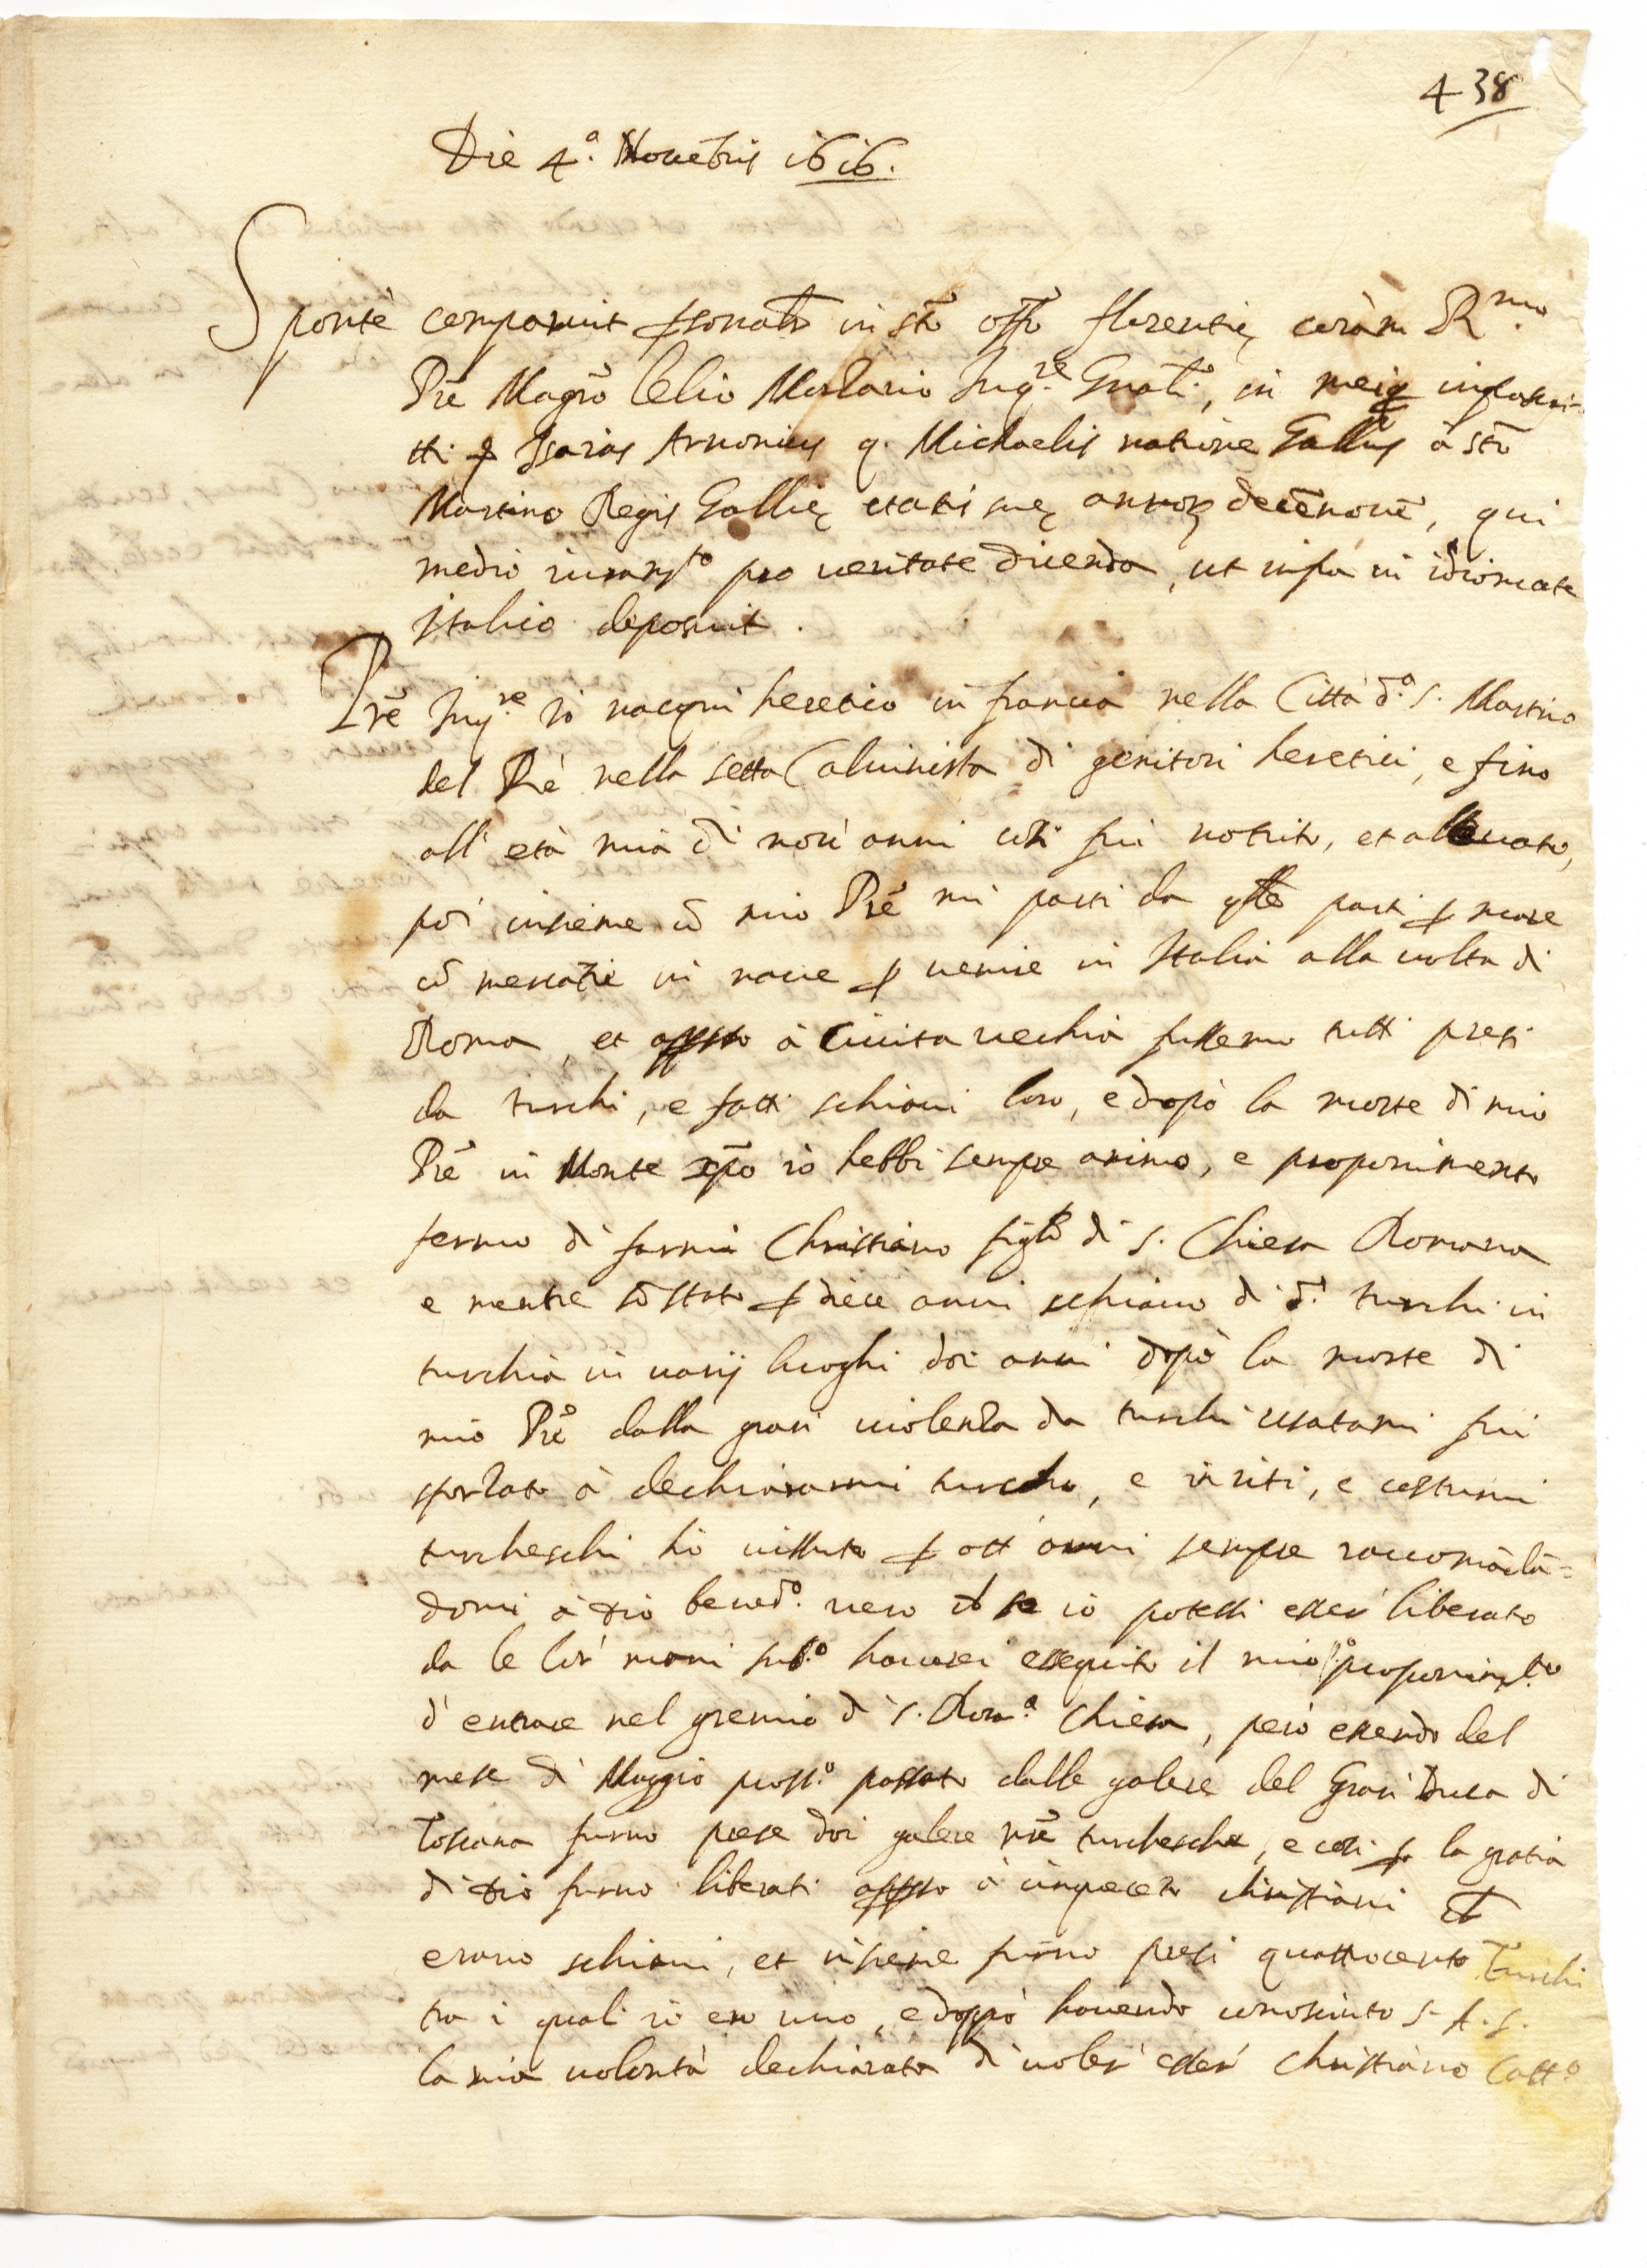 438
Die 4.ª Nouēbris 1616.
Sponte comparuit psonalr in sto offo florentię coram R.mo
Prē Magrō Lelio Marzario Inq.re Gnāli, in meiq infrascri-
tti p Isaias Arnonius q. Michaelis natione Gallus à sto
Martino Regis Gallię etatis suę annorz decēnouē, qui
medio iuramto pro ueritate dicenda, ut infra in idiomate
Italico deposuit.
Prē Inq.re io nacqui heretico in francia nella Città d.ª S. Martino
del Rè nella setta Caluinista di genitori heretici, e fino
all' età mia di nou' anni così fui notrito, et alleuato,
poi insieme cō mio Prē mi parti da qlle parti p mare
cō mercatie in naue p uenire in Italia alla uolta di
Roma, et appsso à Ciuita uechia fussemo tutti presi
da turchi, e fatti schiaui loro, e dopò la morte di mio
Prē in Monte xpo io hebbi sempre animo, e proponimento
fermo di farmi Christiano figlo di S. Chiesa Romana
e mentre sō stato p diece anni schiauo di d.i turchi in
turchia in uarij luoghi doi anni dopò la morte di
mio Prē dalla gran uiolenza da turchi usatami fui
sforzato à dechiararmi turcho, e in riti, e costumi
turcheschi hò uissuto p ott' anni sempre raccomādā=
domi à Dio bened.º uero ch se io potessi esser' liberato
da le lor' mani sub.º hauerei esseguito il mio proponimto
d' entrare nel gremio di S. Rom.ª Chiesa, però essendo del
mese di Maggio pross.º passato dalle galere del Gran Duca di
Toscana furno prese doi galere nrē turchesche, e così p la gratia
di Dio furno liberati appsso à cinqueceto christiani ch
erano schiaui, et insieme furno presi quattrocento Turchi
tra i quali io ero uno, e doppò hauendo conosciuto S. A. S.
la mia uolontà dechiarata di uoler' esser' christiano Catt.º